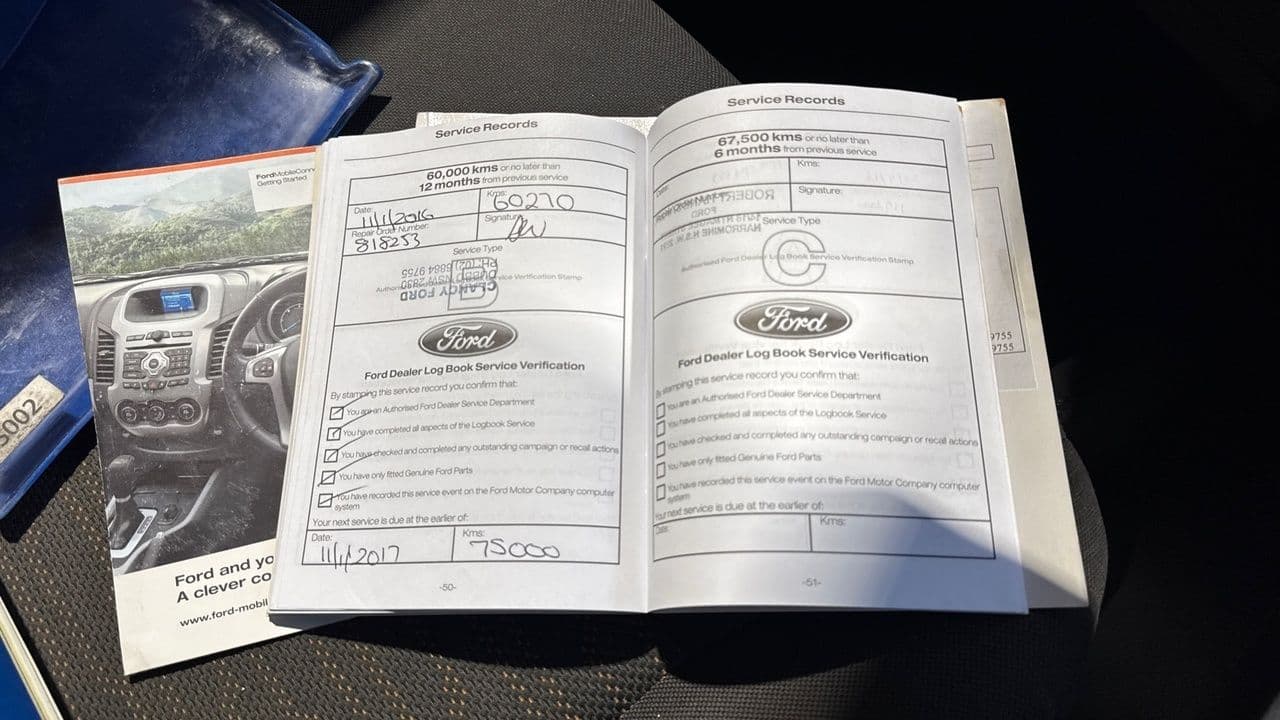 FordMobileConn
Getting Started
Ford and yo
A clever co
www.ford-mobil
S002
Service Records
60,000 kms or no later than
12 months from previous service
Date:
11/1/2016
Kms:
60210
Repair Order Number:
818253
Signature:
Service Type
B
Authorised Ford Dealer Log Book Service Verification Stamp
CLANCY FORD
DUBBO NSW 2830
PH: (02) 6884 9755
Ford
Ford Dealer Log Book Service Verification
By stamping this service record you confirm that:
You are an Authorised Ford Dealer Service Department
You have completed all aspects of the Logbook Service
You have checked and completed any outstanding campaign or recall actions
You have only fitted Genuine Ford Parts
You have recorded this service event on the Ford Motor Company computer
system
Your next service is due at the earlier of:
Date:
11/1/2017
Kms:
75000
-50-
Service Records
67,500 kms or no later than
6 months from previous service
Date:
Kms:
Repair Order Number:
Signature:
Service Type
C
Authorised Ford Dealer Log Book Service Verification Stamp
Ford
Ford Dealer Log Book Service Verification
By stamping this service record you confirm that:
You are an Authorised Ford Dealer Service Department
You have completed all aspects of the Logbook Service
You have checked and completed any outstanding campaign or recall actions
You have only fitted Genuine Ford Parts
You have recorded this service event on the Ford Motor Company computer
system
Your next service is due at the earlier of:
Date:
Kms:
-51-
9755
9755